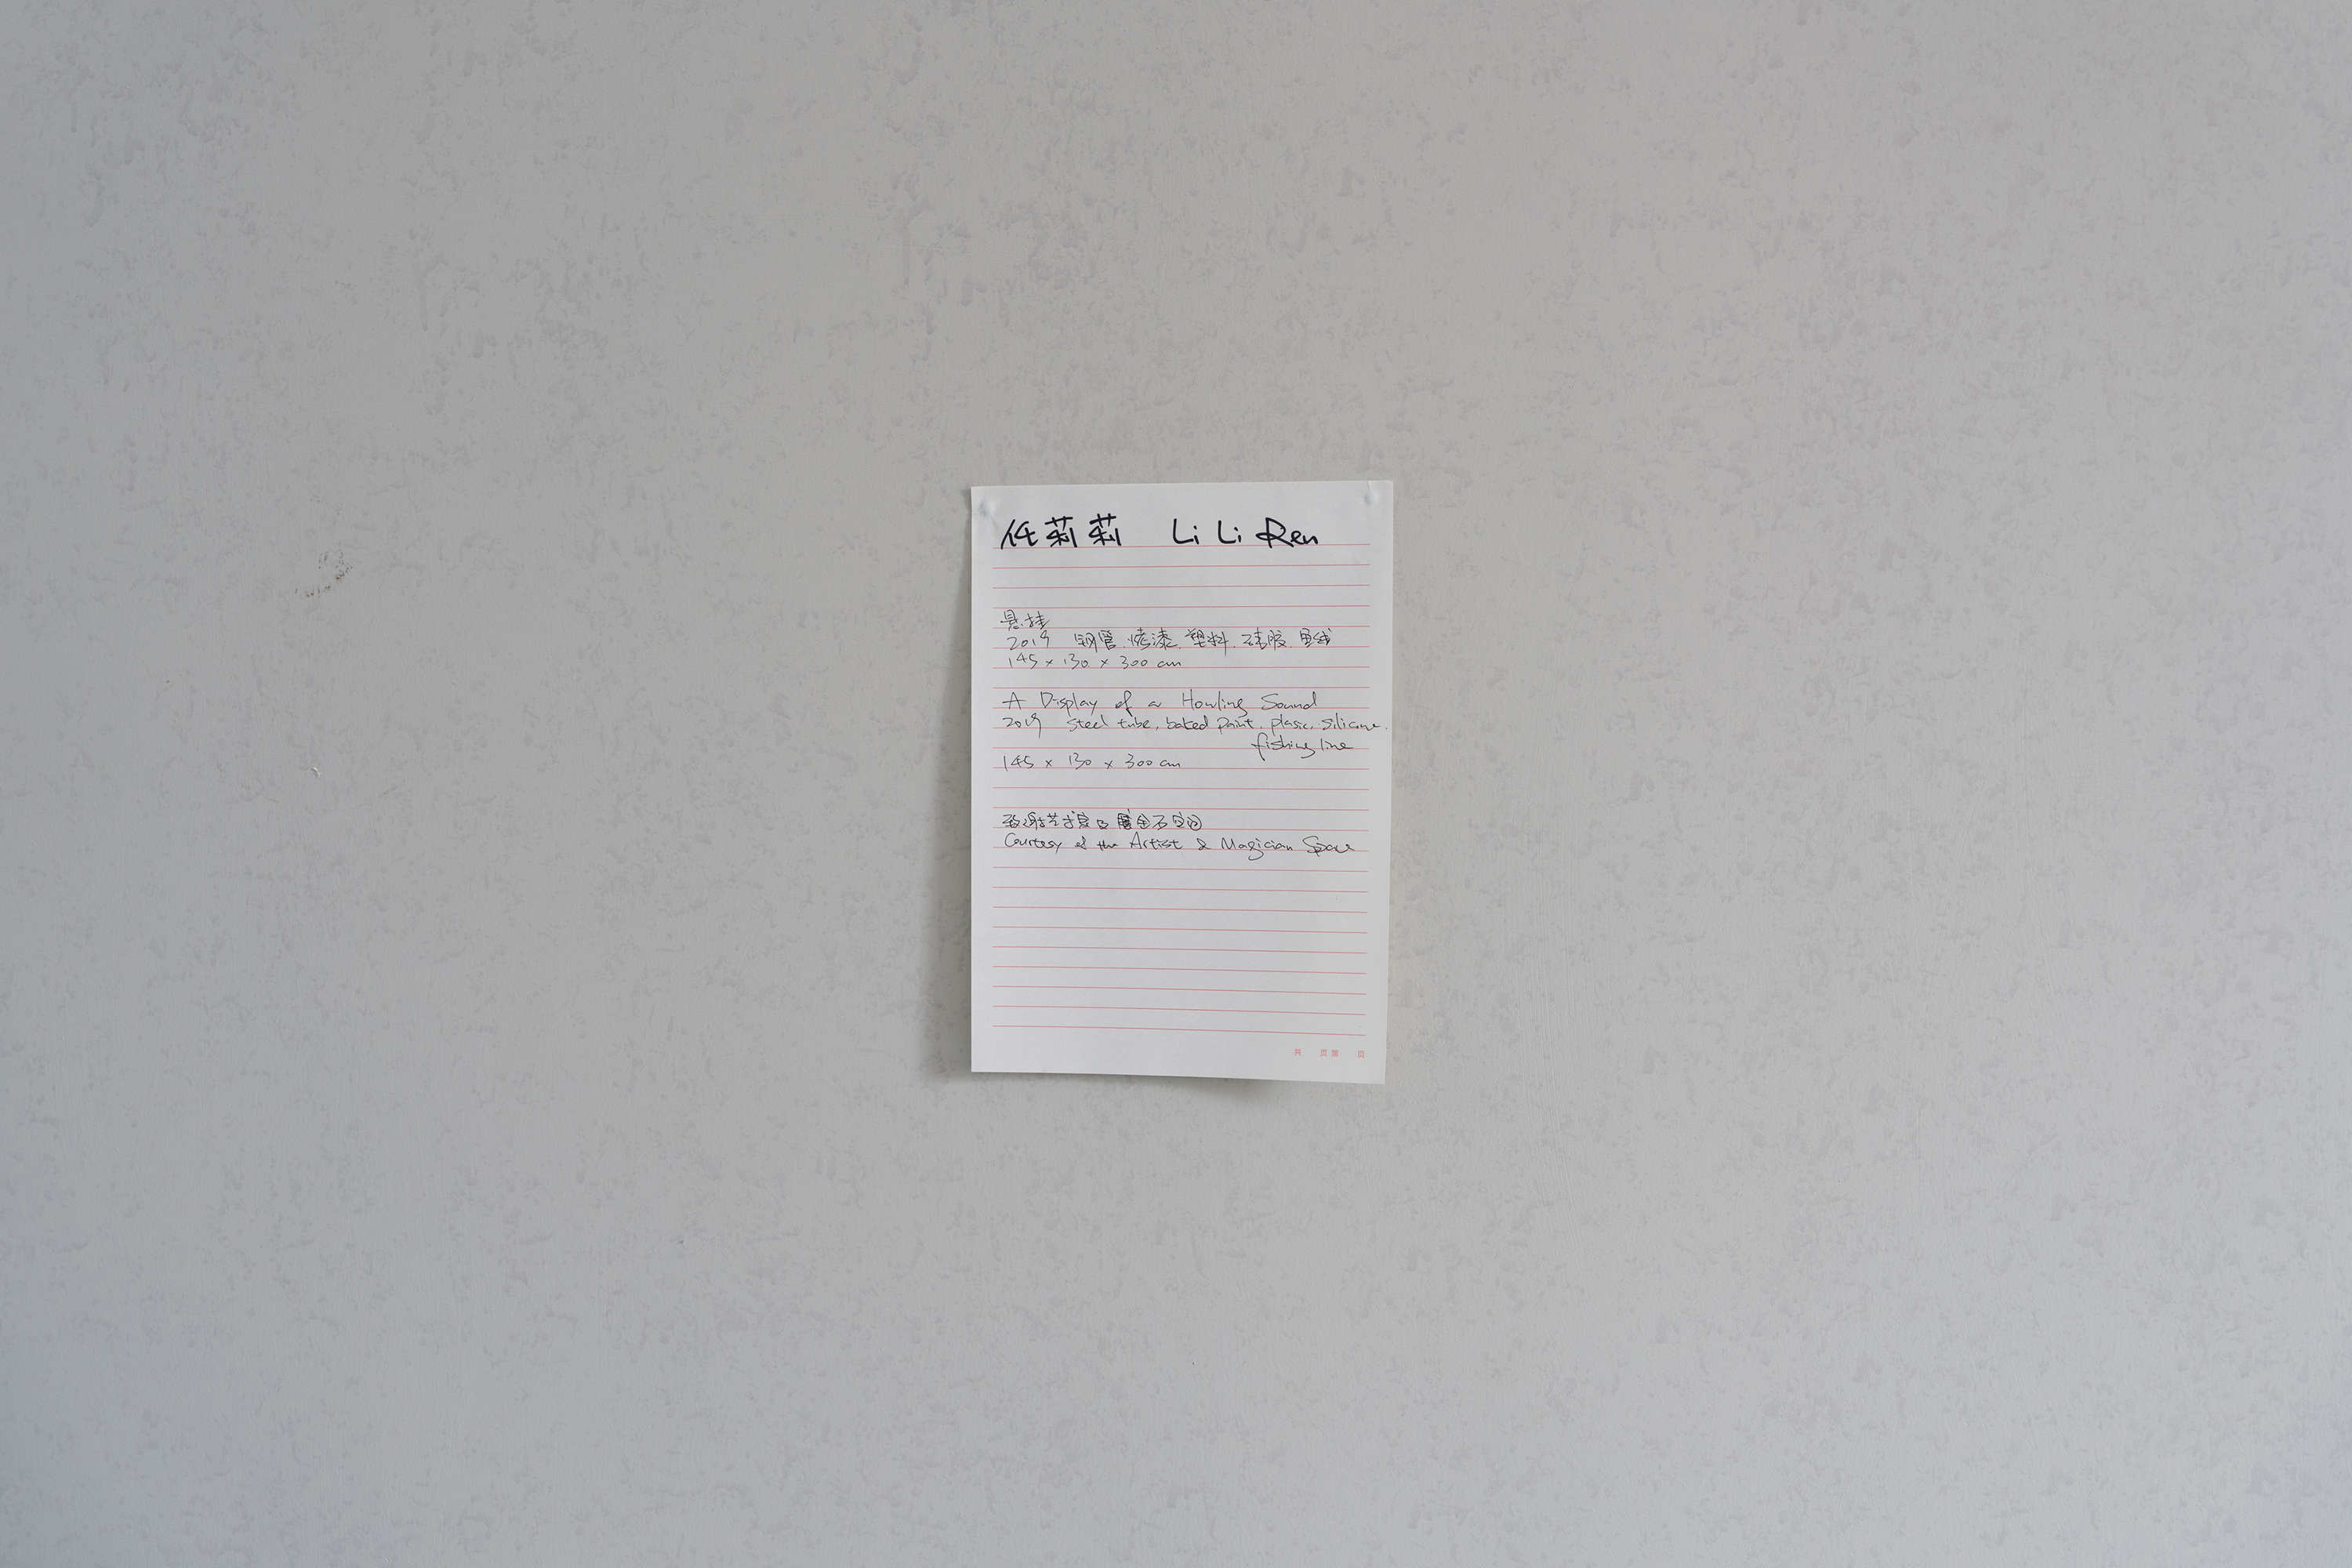 任莉莉 Li Li Ren
悬挂
2019 钢管.烤漆.塑料.硅胶.鱼线
145 × 130 × 300 cm
A Display of a Howling Sound
2019 steel tube, baked paint, plasic, silicone.
fishing line
145 × 130 × 300 cm
致谢艺术家及魔金石空间
Courtesy of the Artist & Magician Space
共 页 第 页